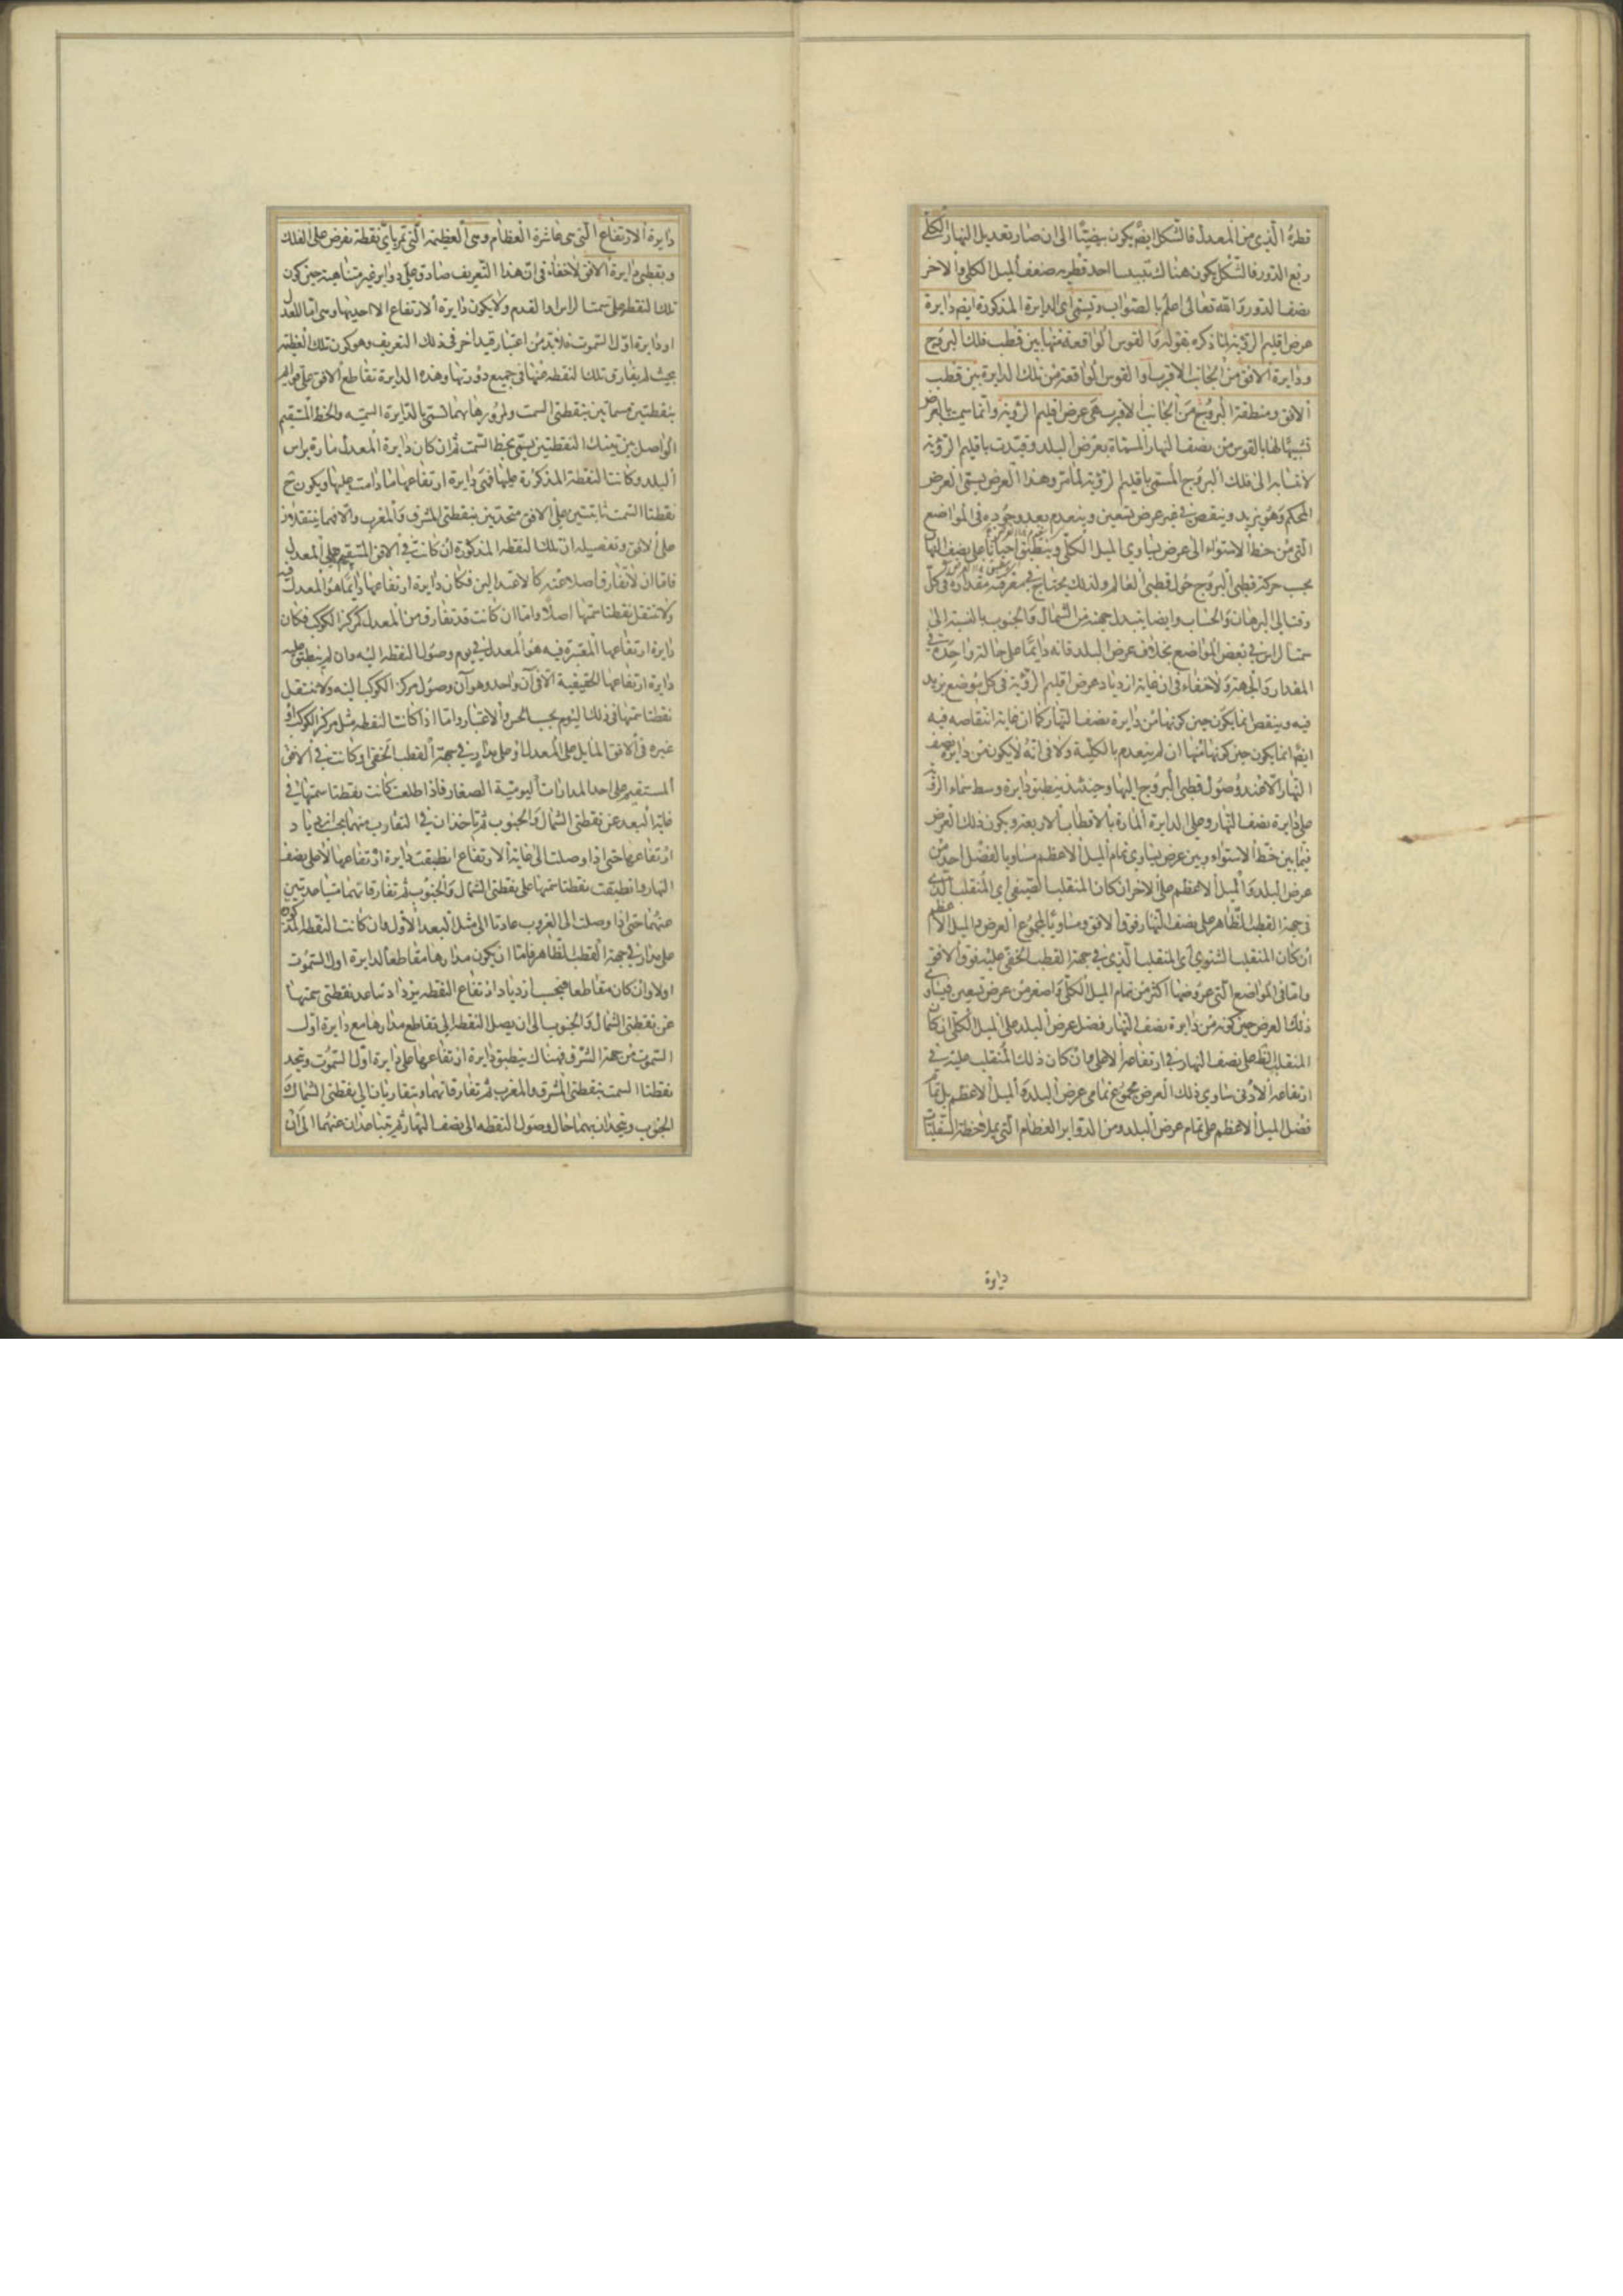 قطره الذي من المعدل فالشكل ايضا يكون بيضيّا الى ان صار تعديل النهار الكلّي
ربع الدور فالشكل يكون هناك احد قطريه ضعف الميل الكلي والاخر
نصف الدور والله تعالى اعلم بالصواب وتسمّى اى الدايرة المذكورة ايضم دايرة
عرض اقليم الرؤية لما ذكره بقوله والقوس الواقعة منها بين قطب فلك البروج
ودايرة الافق من الجانب الاقرب او القوس الواقعة من تلك الدايرة بين قطب
الافق ومنطقة البروج من الجانب الاقرب هى عرض اقليم الرؤية وانما سميت بالعرض
تشبيها لها بالقوس من نصف النهار المسماة بعرض البلد وقيدت باقليم الرؤية
لانتسابه الى فلك البروج المسمّى باقليم الرؤية لما مر وهذا العرض يسمّى العرض
المحكم وهو يزيد وينقص في غير عرض تسعين وينعدم بعد وجوده في المواضع
التي من خط الاستواء الى عرض يساوي الميل الكلّي وينطبق احيانا على نصف النهار
بحسب حركة قطبى البروج حول قطبى العالم ولذلك يحتاج في معرفة مقداره في كلّ
وقت الى البرهان والحساب وايضا يتبدل جهته من الشمال والجنوب بالنسبة الى
سمت الراس في بعض المواضع بخلاف عرض البلد فانه دايما على حالة واحدة في
المقدار والجهة ولا خفاء فى ان غاية ازدياد عرض اقليم الرؤية فى كل موضع يزيد
فيه وينقص انما يكون حين كونها من دايرة نصف النهار كما ان غاية انتقاصه فيه
ايضم انما يكون حين كونها منها ان لم ينعدم بالكلية ولا في انه لا يكون من دايرة نصف
النهار الا عند وصول قطبى البروج اليها وحينئذ ينطبق دايرة وسط سماء الرؤية
على دايرة نصف النهار وعلى الدايرة المارة بالاقطاب الاربعة ويكون ذلك العرض
فيما بين خط الاستواء وبين عرض يساوي تمام الميل الاعظم مساويا لفضل احد من
عرض البلد والميل الاعظم على الاخر ان كان المنقلب الصيفى اى المنقلب الّذي
فى جهة القطب الظاهر على نصف النهار فوق الافق ومساويا لمجموع العرض والميل الاعظم
ان كان المنقلب الشتوي اى المنقلب الّذي في جهة القطب الخفى عليه فوق الافق
واما فى المواضع التى عروضها اكثر من تمام الميل الكلّي واصغر من عرض تسعين فيساوي
ذلك العرض حين كونه من دايرة نصف النهار فضل عرض البلد على الميل الكلّي ان كان
المنقلب على نصف النهار في ارتفاعه الاعلى وان كان ذلك المنقلب عليه في
ارتفاعه الادنى ساوي ذلك العرض مجموع تمامي عرض البلد والميل الاعظم بل تمام
فضل الميل الاعظم على تمام عرض البلد ومن الدواير العظام التى
دايرة
دايرة الارتفاع التى هى عاشرة العظام وهى العظيمة التى تمر باي نقطة تفرض على الفلك
وبقطبى دايرة الافق لاخفاء فى ان هذا التعريف صادق على دواير غير متناهية حين كون
تلك النقطة على سمت الراس او القدم ولا يكون دايرة الارتفاع الا احديها وهى اما المعدل
او دايرة اول السموت فلا بد من اعتبار قيد اخر فى ذلك التعريف وهو كون تلك العظيمة
بحيث لم يفارق تلك النقطة عنها فى جميع دورتها وهذه الدايرة تقاطع الافق على قوايم
بنقطتين مسماتين بنقطتى السمت ولمرورها بهما تسمّى بالدايرة السمتيه والخط المستقيم
الواصل بين تينك النقطتين يسمّى بخط السمت ثم ان كان دايرة المعدل مارة براس
البلد وكانت النقطة المذكورة عليها فهى دايرة ارتفاعها ما دامت عليها ويكون ح
نقطتا السمت ثابتتين على الافق متحدتين بنقطتى المشرق والمغرب والا فهما ينتقلان
على الافق وتفصيله ان تلك النقطه المذكورة ان كانت في الافق المستقيم على المعدل
فاما ان لا تفارق اصلا عنه كالاعتدالين فكان دايرة ارتفاعها دايما هو المعدل فيه
ولا تنتقل نقطتا سمتها اصلا واما ان كانت قد تفارق من المعدل كمركز الكوكب فكان
دايرة ارتفاعها المعتبرة فيه هو المعدل في يوم وصول النقطة اليه وان لم ينطبق عليه
دايرة ارتفاعها الحقيقية الا فى آن واحد وهو آن وصول مركز الكوكب اليه ولا تنتقل
نقطتا سمتها فى ذلك اليوم بحسب الحس والاعتبار واما اذا كانت النقطه مثل مركز الكوكب او
غيره فى الافق المايل على المعدل او على مدار في جهة القطب الخفى او كانت في الافق
المستقيم على احد المدارات اليومية الصغار فاذا طلعت كانت نقطتا سمتها في
غاية البعد عن نقطتى الشمال والجنوب ثم ياخذان في التقارب منهما بحسب ازدياد
ارتفاعها حتى اذا وصلت الى غاية الارتفاع انطبقت دايرة ارتفاعها الاعلى نصف
النهار وانطبقت نقطتا سمتها على نقطتى الشمال والجنوب ثم تفارقانهما متباعدتين
عنهما حتى اذا وصلت الى الغروب عادتا الى مثل البعد الاول وان كانت النقطه المذكورة
على مدار في جهة القطب الظاهر فاما ان يكون مدارها مقاطعا لدايرة اول السموت
اولا وان كان مقاطعا فبحسب ازدياد ارتفاع النقطه يزداد تباعد نقطتى سمتها
عن نقطتى الشمال والجنوب الى ان يصل النقطه الى تقاطع مدارها مع دايرة اول
السموت من جهة الشرق فهناك ينطبق دايرة ارتفاعها على دايرة اوّل السموت وتتحد
نقطتا السمت بنقطتى المشرق والمغرب ثم تفارقانهما وتتقاربان الى نقطتى الشمال و
الجنوب ويتحدان بهما حال وصول النقطه الى نصف النهار ثم يتباعدان عنهما الى ان